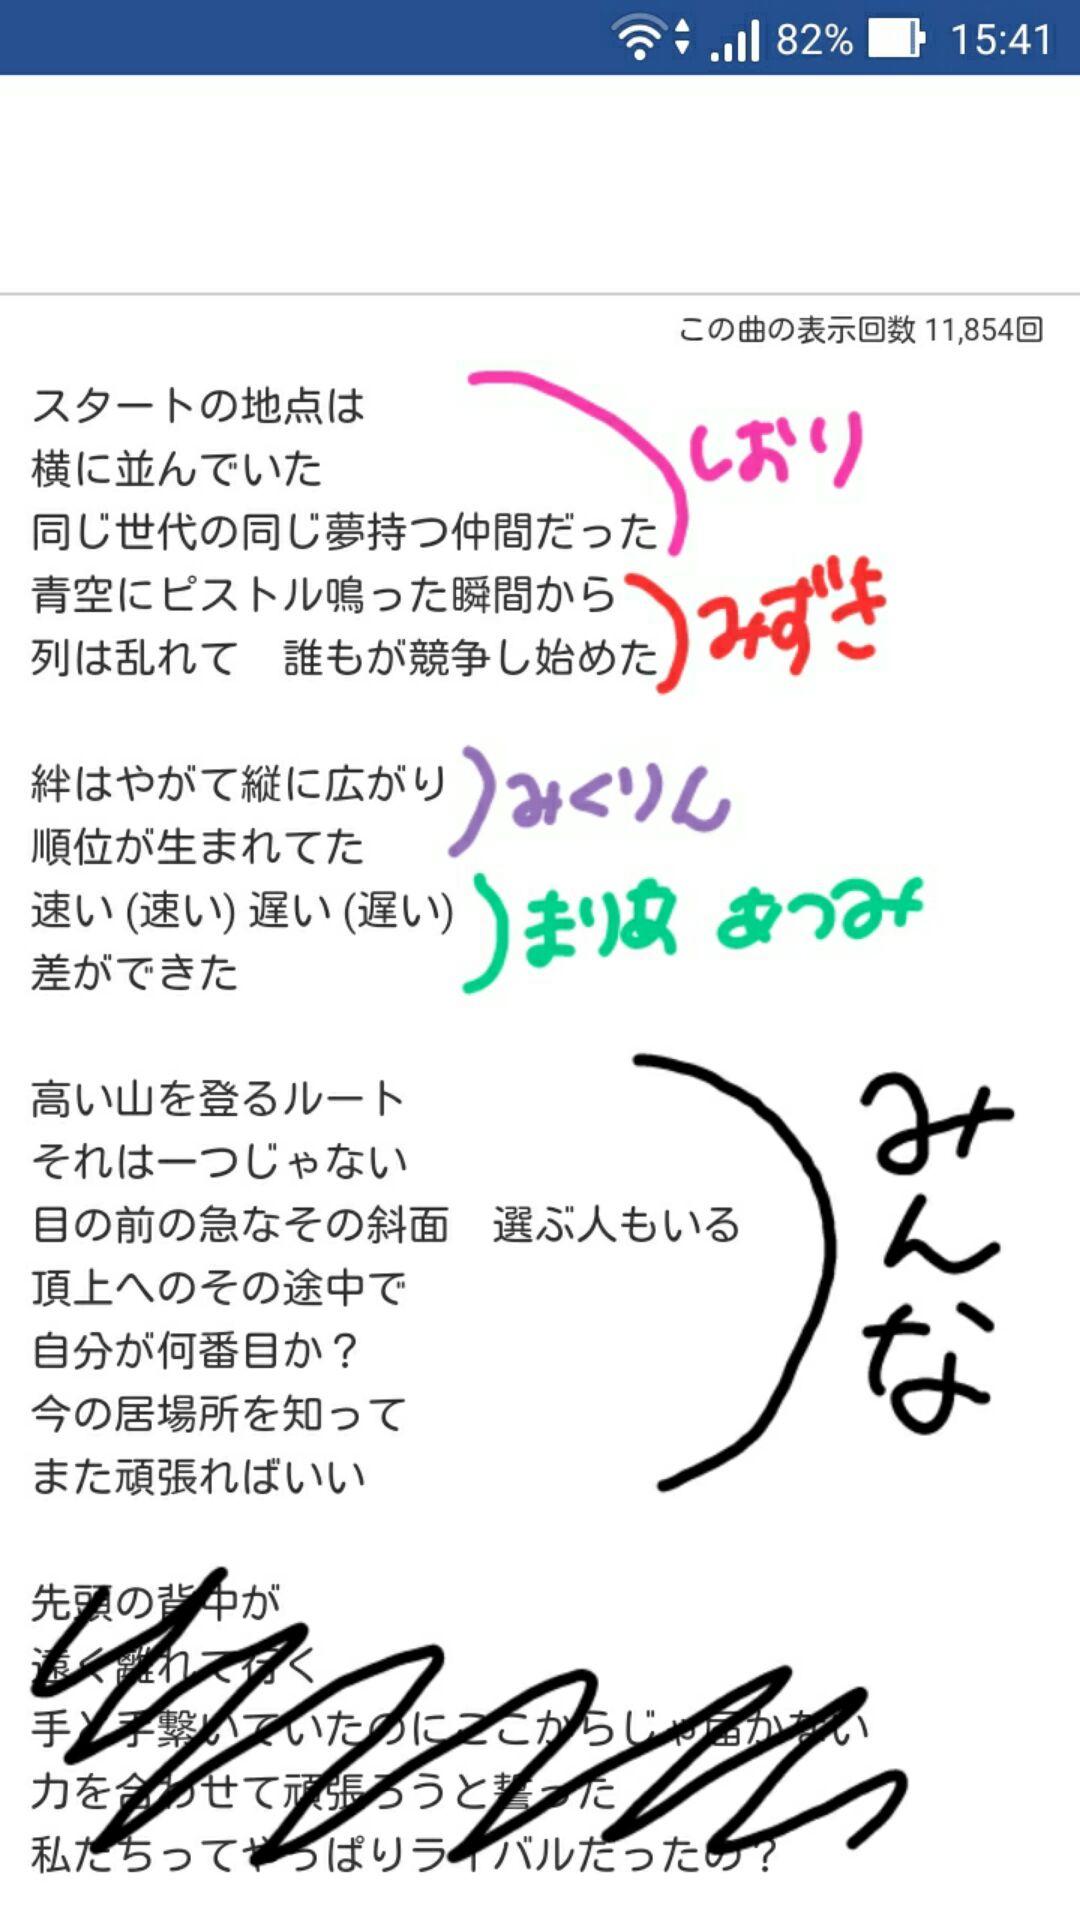 82% 15:41
この曲の表示回数 11,854回
スタートの地点は
横に並んでいた
同じ世代の同じ夢持つ仲間だった
しおり
青空にピストル鳴った瞬間から
列は乱れて　誰もが競争し始めた
みずき
絆はやがて縦に広がり
順位が生まれてた
みくりん
速い (速い) 遅い (遅い)
差ができた
まりあ あつみ
高い山を登るルート
それは一つじゃない
目の前の急なその斜面　選ぶ人もいる
頂上へのその途中で
自分が何番目か？
今の居場所を知って
また頑張ればいい
みんな
先頭の背中が
遠く離れて行く
手と手繋いでいたのにここからじゃ届かない
力を合わせて頑張ろうと誓った
私たちってやっぱりライバルだったの？